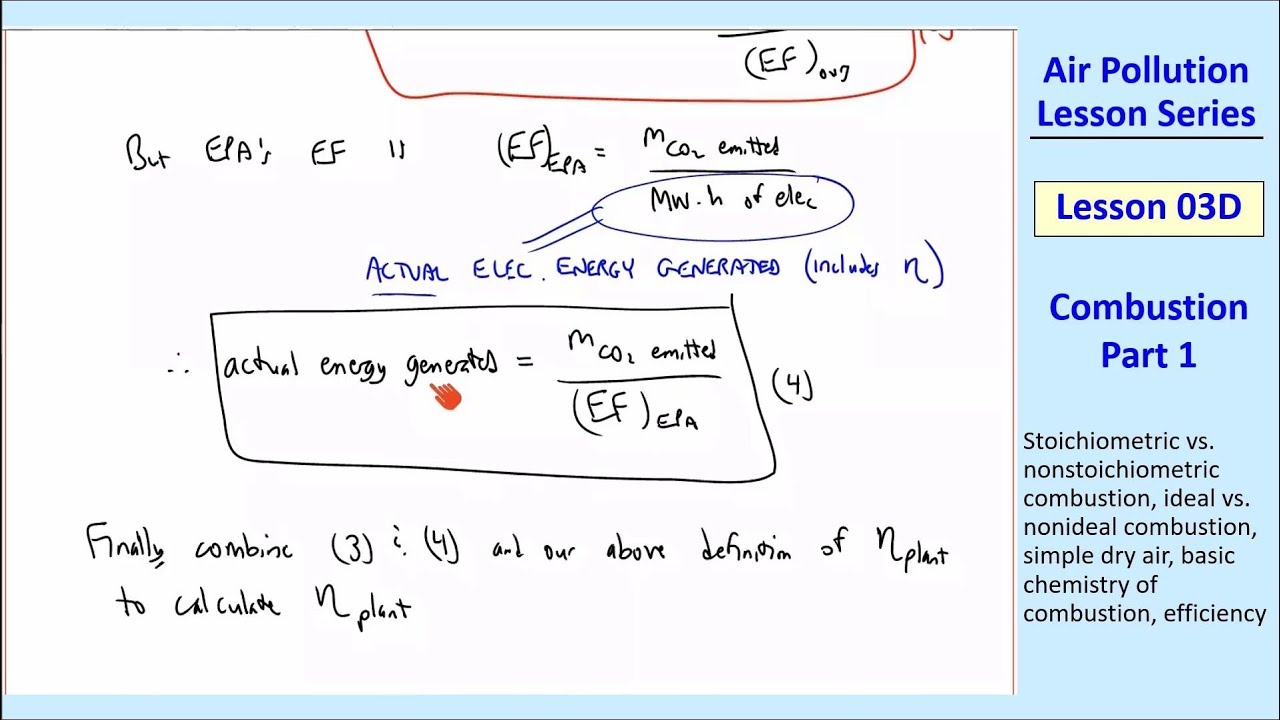 (EF)out
But EPA's EF is (EF)EPA = mCO2 emitted
MW·h of elec
ACTUAL ELEC. ENERGY GENERATED (includes η)
∴ actual energy generated = mCO2 emitted
(EF)EPA
(4)
Finally combine (3) & (4) and our above definition of ηplant
to calculate ηplant
Air Pollution
Lesson Series
Lesson 03D
Combustion
Part 1
Stoichiometric vs.
nonstoichiometric
combustion, ideal vs.
nonideal combustion,
simple dry air, basic
chemistry of
combustion, efficiency